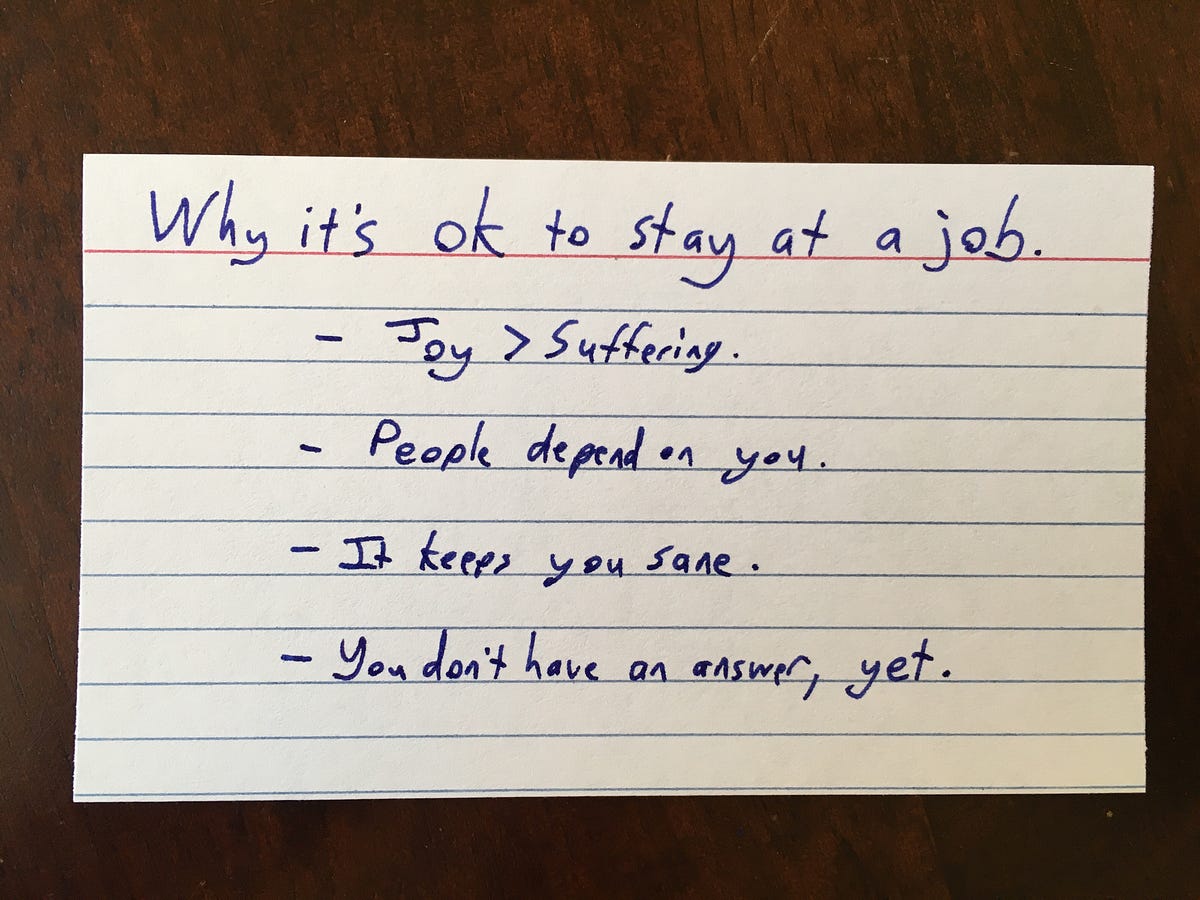 Why it's ok to stay at a job.
- Joy > Suffering.
- People depend on you.
- It keeps you sane.
- You don't have an answer, yet.